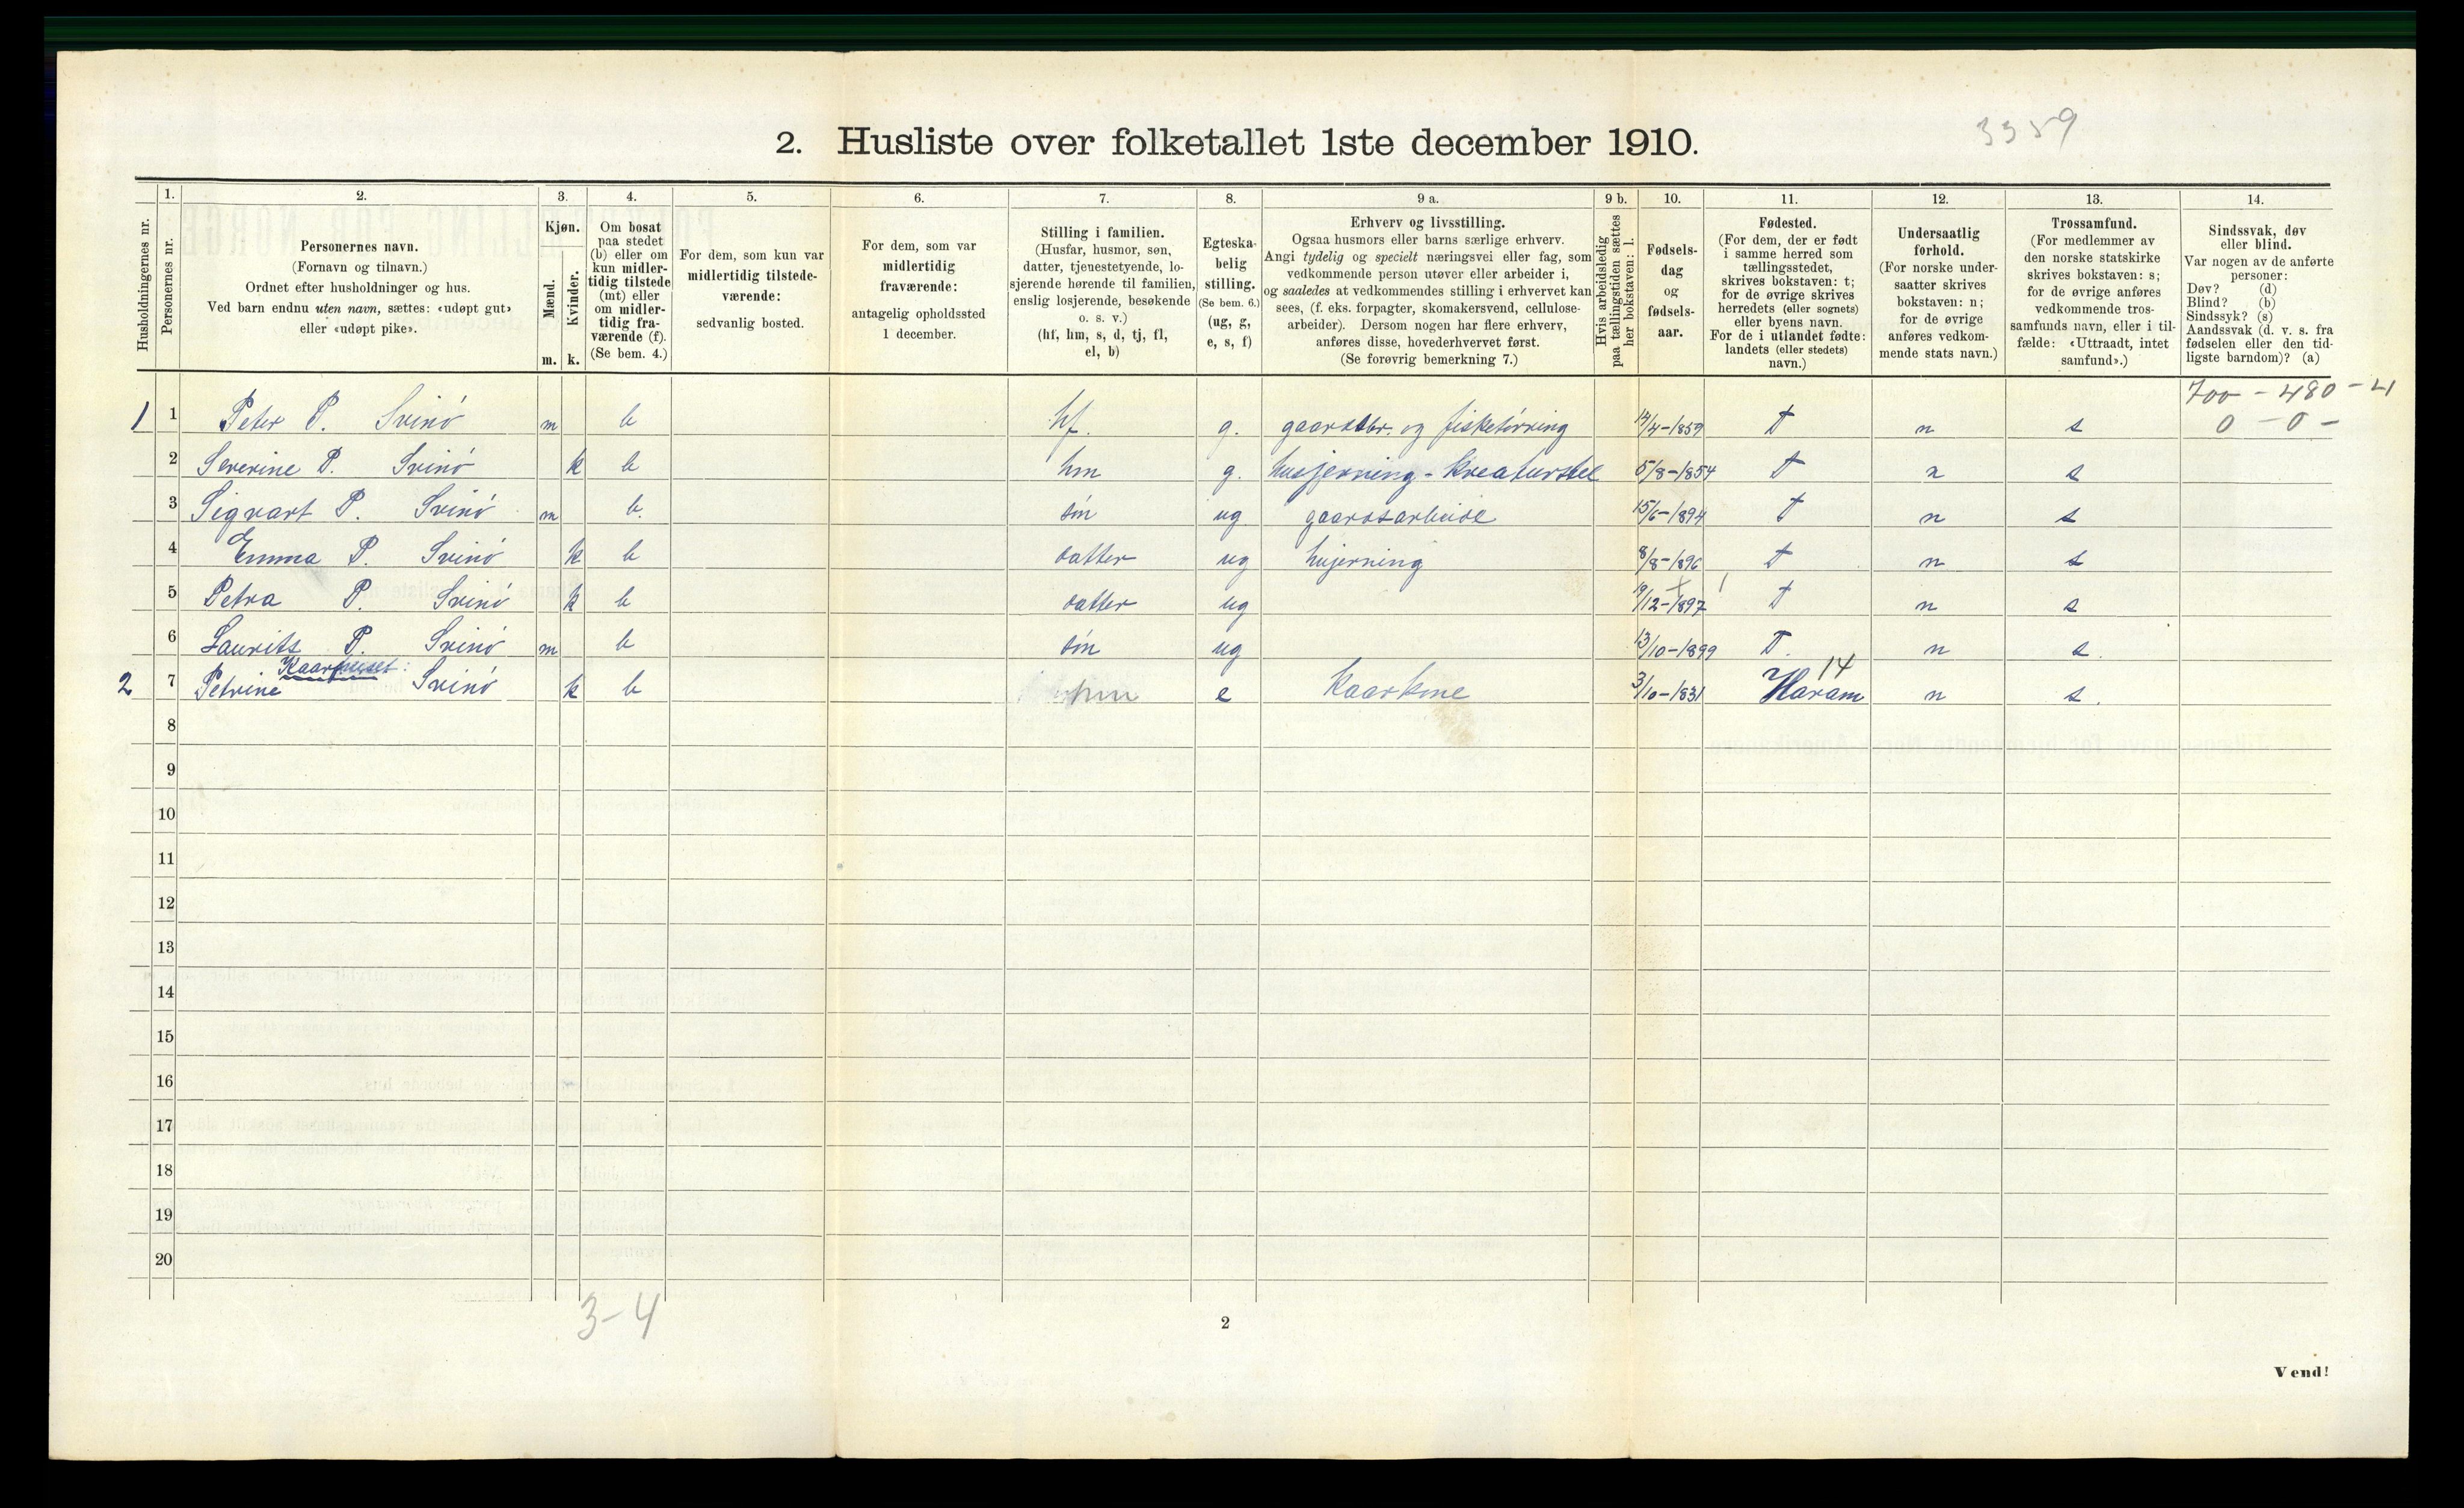 3359
2. Husliste over folketallet 1ste december 1910.
Husholdningernes nr.
1. Personernes nr.
2. Personernes navn.
(Fornavn og tilnavn.)
Ordnet efter husholdninger og hus.
Ved barn endnu uten navn, sættes: «udøpt gut»
eller «udøpt pike».
3. Kjøn.
Mænd. m.
Kvinder. k.
4. Om bosat
paa stedet
(b) eller om
kun midler-
tidig tilstede
(mt) eller
om midler-
tidig fra-
værende (f).
(Se bem. 4.)
5. For dem, som kun var
midlertidig tilstede-
værende:
sedvanlig bosted.
6. For dem, som var
midlertidig
fraværende:
antagelig opholdssted
1 december.
7. Stilling i familien.
(Husfar, husmor, søn,
datter, tjenestetyende, lo-
sjerende hørende til familien,
enslig losjerende, besøkende
o. s. v.)
(hf, hm, s, d, tj, fl,
el, b)
8. Egteska-
belig
stilling.
(Se bem. 6.)
(ug, g,
e, s, f)
9 a. Erhverv og livsstilling.
Ogsaa husmors eller barns særlige erhverv.
Angi tydelig og specielt næringsvei eller fag, som
vedkommende person utøver eller arbeider i,
og saaledes at vedkommendes stilling i erhvervet kan
sees, (f. eks. forpagter, skomakersvend, cellulose-
arbeider). Dersom nogen har flere erhverv,
anføres disse, hovederhvervet først.
(Se forøvrig bemerkning 7.)
9 b. Hvis arbeidsledig
paa tællingstiden sættes
her bokstaven: l.
10. Fødsels-
dag
og
fødsels-
aar.
11. Fødested.
(For dem, der er født
i samme herred som
tællingsstedet,
skrives bokstaven: t;
for de øvrige skrives
herredets (eller sognets)
eller byens navn.
For de i utlandet fødte:
landets (eller stedets)
navn.)
12. Undersaatlig
forhold.
(For norske under-
saatter skrives
bokstaven: n;
for de øvrige
anføres vedkom-
mende stats navn.)
13. Trossamfund.
(For medlemmer av
den norske statskirke
skrives bokstaven: s;
for de øvrige anføres
vedkommende tros-
samfunds navn, eller i til-
fælde: «Uttraadt, intet
samfund».)
14. Sindssvak, døv
eller blind.
Var nogen av de anførte
personer:
Døv? (d)
Blind? (b)
Sindssyk? (s)
Aandssvak (d. v. s. fra
fødselen eller den tid-
ligste barndom)? (a)
700 - 480 - 21
0 - 0 -
1 1 Peter P. Svinö m b hf. g. gaardbr. og fisketörring 14/4-1859 T n s
2 Severine P. Svinö k b hm g. husjerning - Kreaturstel 5/8-1854 T n s
3 Sigvart P. Svinö m b. sön ug gaardsarbeide 15/6-1894 T n s
4 Emma P. Svinö k b datter ug hujerning 8/8-1896 T n s
5 Petra P. Svinö k b datter ug 19/12-1897 T n s
6 Laurits P. Svinö m b sön ug 13/10-1899 T. n s.
Kaarhuset:
14
2 7 Petrine Svinö k b hm e Kaarkone 3/10-1831 Haram n s.
8
9
10
11
12
13
14
15
16
17
18
19
20
3-4
2
Vend!